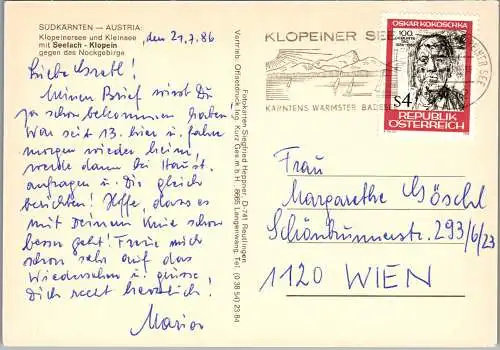 SÜDKÄRNTEN — AUSTRIA
Klopeinersee und Kleinsee
mit Seelach - Klopein
gegen das Nockgebirge
den 21.7.86
Liebe Gretl!
Meinen Brief wirst Du
ja schon bekommen haben.
War seit 13. hier u. fahre
morgen wieder heim,
werde dann bei Haust.
anfragen u. Dir gleich
berichten! Hoffe, dass es
mit Deinem Knie schon
besser geht! Freue mich
schon sehr auf das
Wiedersehen u. grüsse
Dich recht herzlich!
Marion
Fotokarten Siegfried Heppner, D-741 Reutlingen
Vertrieb: Offsetdruck Ing. Kurz Ges.m.b.H. 8665 Langenwang, Tel. (0 38 54) 23 84
KLOPEINER SEE
KÄRNTENS WARMSTER BADESEE
OSKAR KOKOSCHKA
100.
S4
REPUBLIK
ÖSTERREICH
Frau
Margarethe Göschl
Schönbrunnerstr. 293/6/23
1120 WIEN